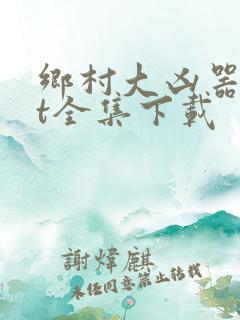 鄉村大凶器
t全集下載
謝煒麒
未任同意禁止轉載